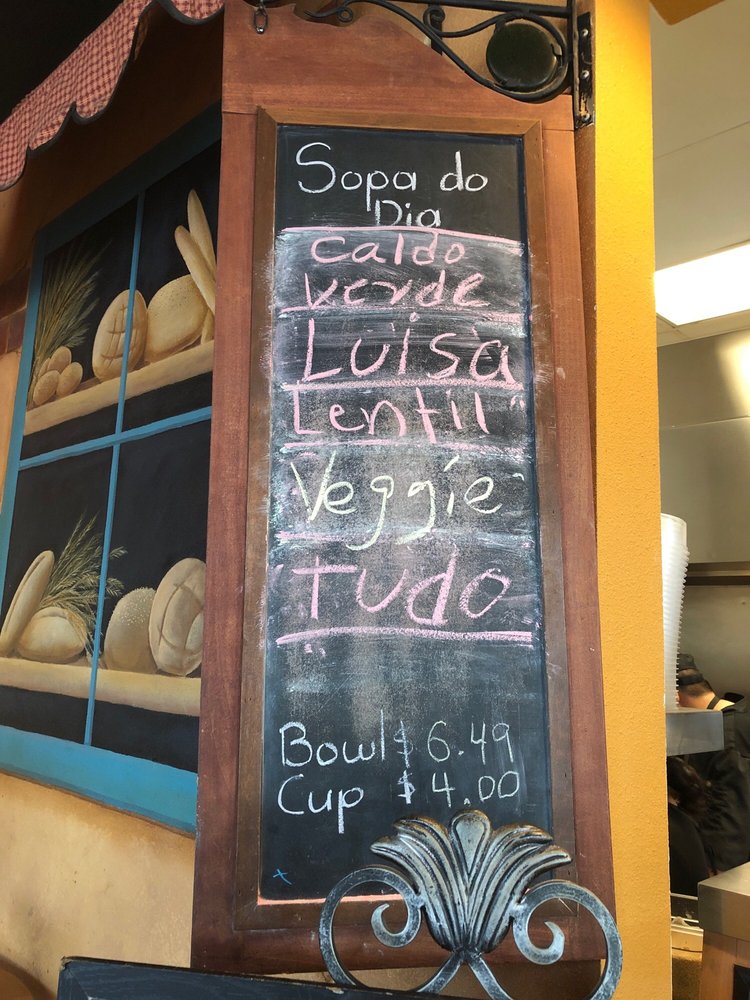 Sopa do
Dia
Caldo
verde
Luisa
Lentil
Veggie
Tudo
Bowl $ 6.49
Cup $ 4.00